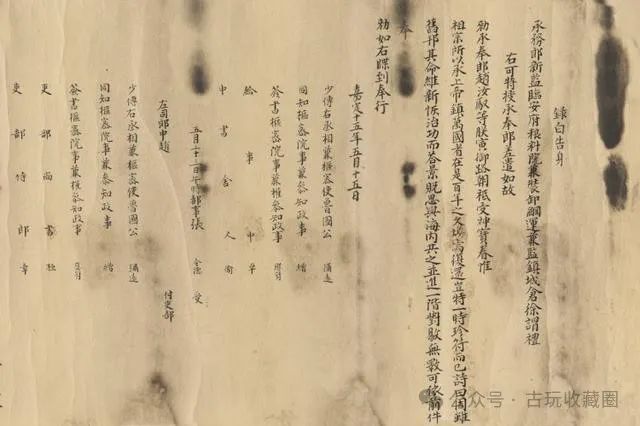 錄白告身
承務郎新監臨安府糧料院兼裝卸綱運兼監鎮城倉徐謂禮
右可特授承奉郎差遣如故
勑承奉郎趙汝馭等朕寅御路朝祗受神寶眷惟
祖宗所以承上帝鎮萬國者在是百年之久焉而復還豈特一時珍符而已詩曰周雖
舊邦其命維新恢治功而荅景貺思與海內共之並進一階對敭無斁可依前件
奉
勑如右牒到奉行
嘉定十五年五月十五日
少傅右丞相兼樞密使魯國公 彌遠
同知樞密院事兼參知政事 繒
簽書樞密院事兼權參知政事
給事中 卓
中書舍人 衛
五月十一日午時都事張 受
左司郎中趙 付吏部
少傅右丞相兼樞密使魯國公 彌遠
同知樞密院事兼參知政事 繒
簽書樞密院事兼權參知政事
吏部尚書
吏部侍郎 章
公众号·古玩收藏圈